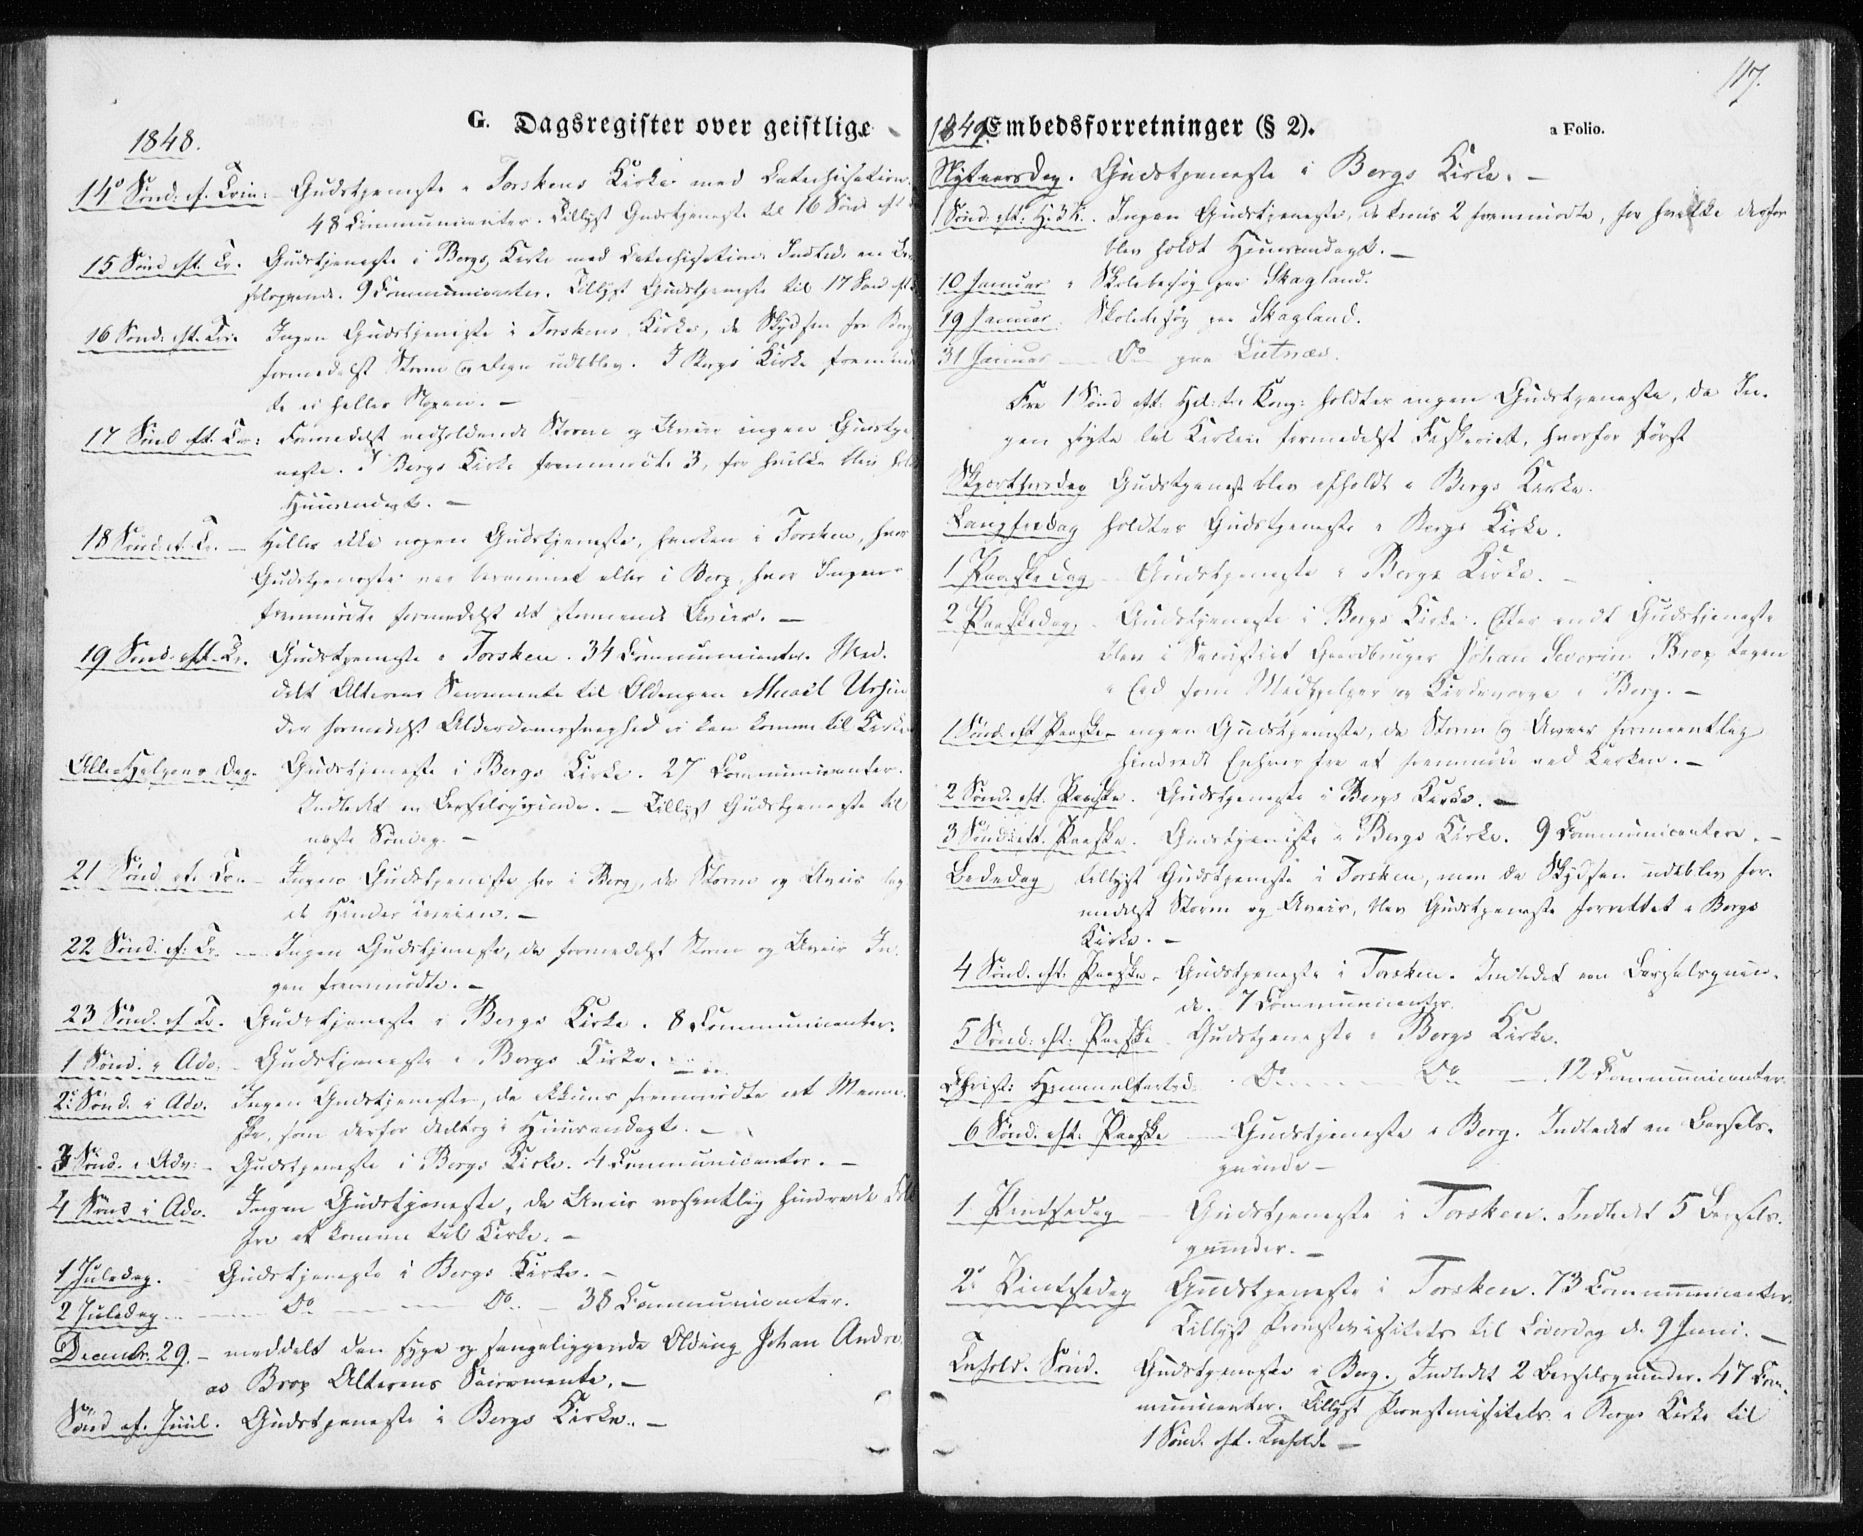 G. Dagsregister over geistlige
1848.
14º Sönd: ef. Trin: Gudstjeneste i Torskens Kirke med Catechisation.
48 Communicanter. Tillyst Gudstjeneste til 16 Sönd eft
15 Sönd eft. Tr. Gudstjeneste i Bergs Kirke med Catechisation. Indled. en
9 Communicanter. Tillyst Gudstjeneste til 17 Sönd eft
16 Sönd. eft. Tr. Ingen Gudstjeneste i Torskens Kirke, da Skydsen fra Berg
formedelst Storm udeblev. I Bergs Kirke fremmöd
te ei heller Nogen. —
17 Sönd eft. Tr: Formedelst vedholdende Storm og Uveir ingen Gudstje
neste. I Bergs Kirke fremmödte 3, for hvilke blev hold
Huusandagt. —
18 Sönd ef. Tr. — Heller ikke nogen Gudstjeneste, hverken i Torsken, hvor
Gudstjeneste var berammet eller i Berg, hvor Ingen
fremmödte formedelst det Uveir. —
19 Sönd. eft. Tr. Gudstjeneste i Torsken. 34 Communicanter. Med-
delt Alterens Sacramente til Oldingen Micael Ursin
der formedelst Alderdomssvaghed ei kan komme til Kirke
Alle Helgens Dag. Gudstjeneste i Bergs Kirke. 27 Communicanter.
Indledt en Barselqvinde. — Tillyst Gudstjeneste til
næste Söndag. —
21 Sönd ef. Tr. Ingen Gudstjeneste her i Berg, da Storm og Uveir lag
de Hinder iveien. —
22 Sönd. ef: Tr. — Ingen Gudstjeneste, da formedelst Storm og Uveir In-
gen fremmödte. —
23 Sönd. ef Tr. Gudstjeneste i Bergs Kirke. 8 Communicanter.
1 Sönd. i Adv. Gudstjeneste i Bergs Kirke.
2: Sönd. i Adv. Ingen Gudstjeneste, da ikkuns fremmödte et Menne-
ske, som derfor deeltog i Huusandagt. —
3 Sönd. i Adv: — Gudstjeneste i Bergs Kirke. 4 Communicanter. —
4 Sönd i Adv. Ingen Gudstjeneste, da Uveir væsentlig hindrede Folk
fra at komme til Kirke. —
1 Juledag. Gudstjeneste i Bergs Kirke. —
2 Juledag. — Do — Do — 38 Communicanter.
Decemb. 29. — meddelt den syge og sengeliggende Olding Johan Andre
as Brox Alterens Sacramente. —
Sönd ef. Juul. Gudstjeneste i Bergs Kirke. —
117.
Embedsforretninger (§ 2).
a Folio.
1849.
Nytaarsdag. Gudstjeneste i Bergs Kirke. —
1 Sönd. eft: H. 3 K. Ingen Gudstjeneste, da kuns 2 fremmödte, for hvilke derfor
blev holdt Huusandagt. —
10 Januar Skolebesög paa Skagland.
19 Januar. Skolebesög paa Skagland.
31 Januar — Do paa Lutnæs.
Fra 1 Sönd eft. Hel: tre Kong: holdtes ingen Gudstjeneste, da In-
gen sögte til Kirken formedelst Fiskeriet, hvorfor först
Skjærtorsdag Gudstjeneste blev afholdt i Bergs Kirke.
Langfredag holdtes Gudstjeneste i Bergs Kirke.
1 Paaskedag — Gudstjeneste i Bergs Kirke. —
2 Paaskedag — Gudstjeneste i Bergs Kirke. Efter endt Gudstjeneste
blev i Sacristiet Gaardbruger Johan Severin Brox tagen
i Eed som Medhjelper og Kirkeværge i Berg. —
1. Sönd. eft Paaske — ingen Gudstjeneste, da Storm og Uveir formeentlig
hindrede Enhver fra at fremmöde ved Kirken. —
2 Sönd. eft. Paaske. Gudstjeneste i Bergs Kirke. —
3 Sönd. eft. Paaske. Gudstjeneste i Bergs Kirke. 9 Communicantere. —
Bededag tillyst Gudstjeneste i Torsken, men da Skydsen udeblev for-
medelst Storm og Uveir, blev Gudstjeneste forrettet i Bergs
Kirke. —
4 Sönd. eft. Paaske. Gudstjeneste i Torsken. Indledet een Barselqvin-
de. 7 Communicanter.
5 Sönd: eft: Paaske. Gudstjeneste i Bergs Kirke.
Christ: Himmelfartsd. Do — Do — 12 Communicanter.
6 Sönd. eft. Paaske — Gudstjeneste i Berg. Indledt en Barsels-
qvinde —
1. Pindsedag — Gudstjeneste i Torsken. Indledt 5 Barsels-
qvinder. —
2. Pintsedag Gudstjeneste i Torsken. 73 Communicanter.
Tillyst Provstevisitats til Löverdag d. 9 Juni. —
Trefold. Sönd. Gudstjeneste i Berg. Indledt 2 Barselqvinder. 47 Com-
municanter. Tillyst Provstevisitats i Bergs Kirke til
1 Sönd. eft. Trefold. —